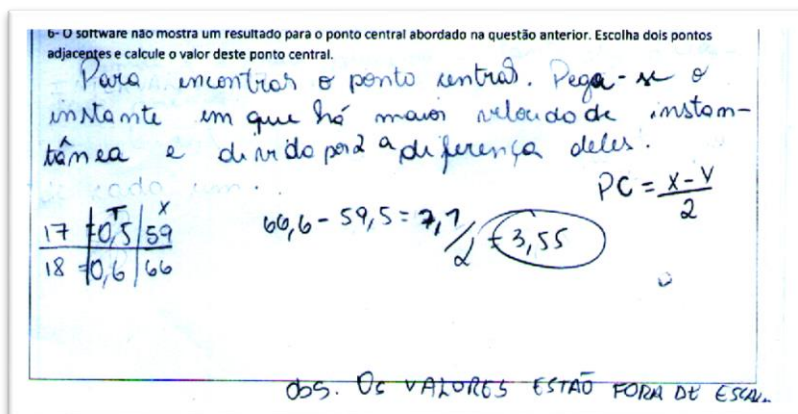 6- O software não mostra um resultado para o ponto central abordado na questão anterior. Escolha dois pontos
adjacentes e calcule o valor deste ponto central.
Para encontrar o ponto central. Pega-se o
instante em que há maior velocidade instan-
tânea e divido por 2 a diferença deles.
PC = x-y/2
T x
17 0,5 59
18 0,6 66
66,6 - 59,5 = 7,1/2 = 3,55
Obs. Os VALORES ESTÃO FORA DE ESCAL